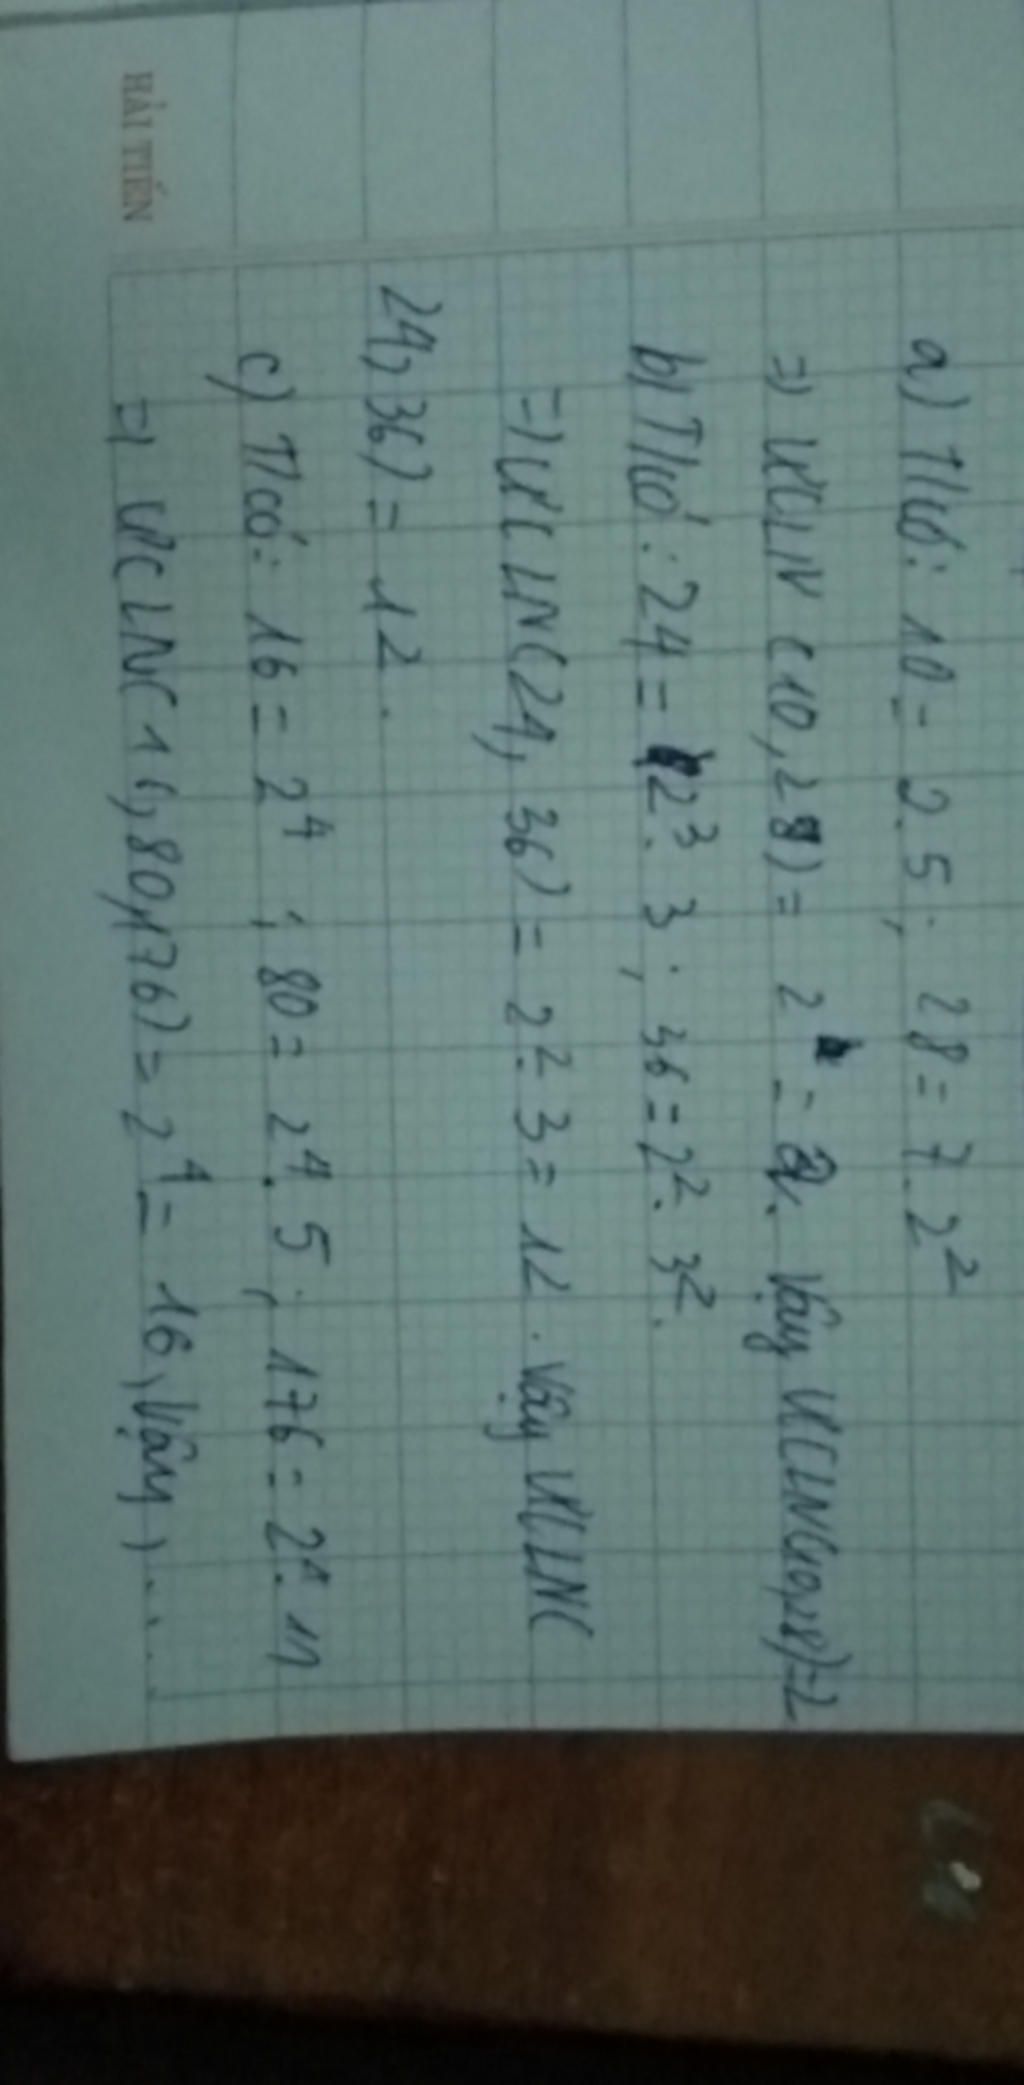 a) T/có: 10 = 2.5; 28 = 7.2²
=) ƯCLN (10,28) = 2 = 2. Vậy ƯCLN(10,28)=2
b) T/có: 24 = 2³. 3; 36 = 2². 3².
=) ƯCLN(24, 36) = 2². 3 = 12. Vậy ƯCLN(
24, 36) = 12.
c) T/có: 16 = 2⁴; 80 = 2⁴. 5; 176 = 2⁴. 11
=) ƯCLN(16, 80, 176) = 2⁴ = 16, Vậy, ...
HẢI TIẾN